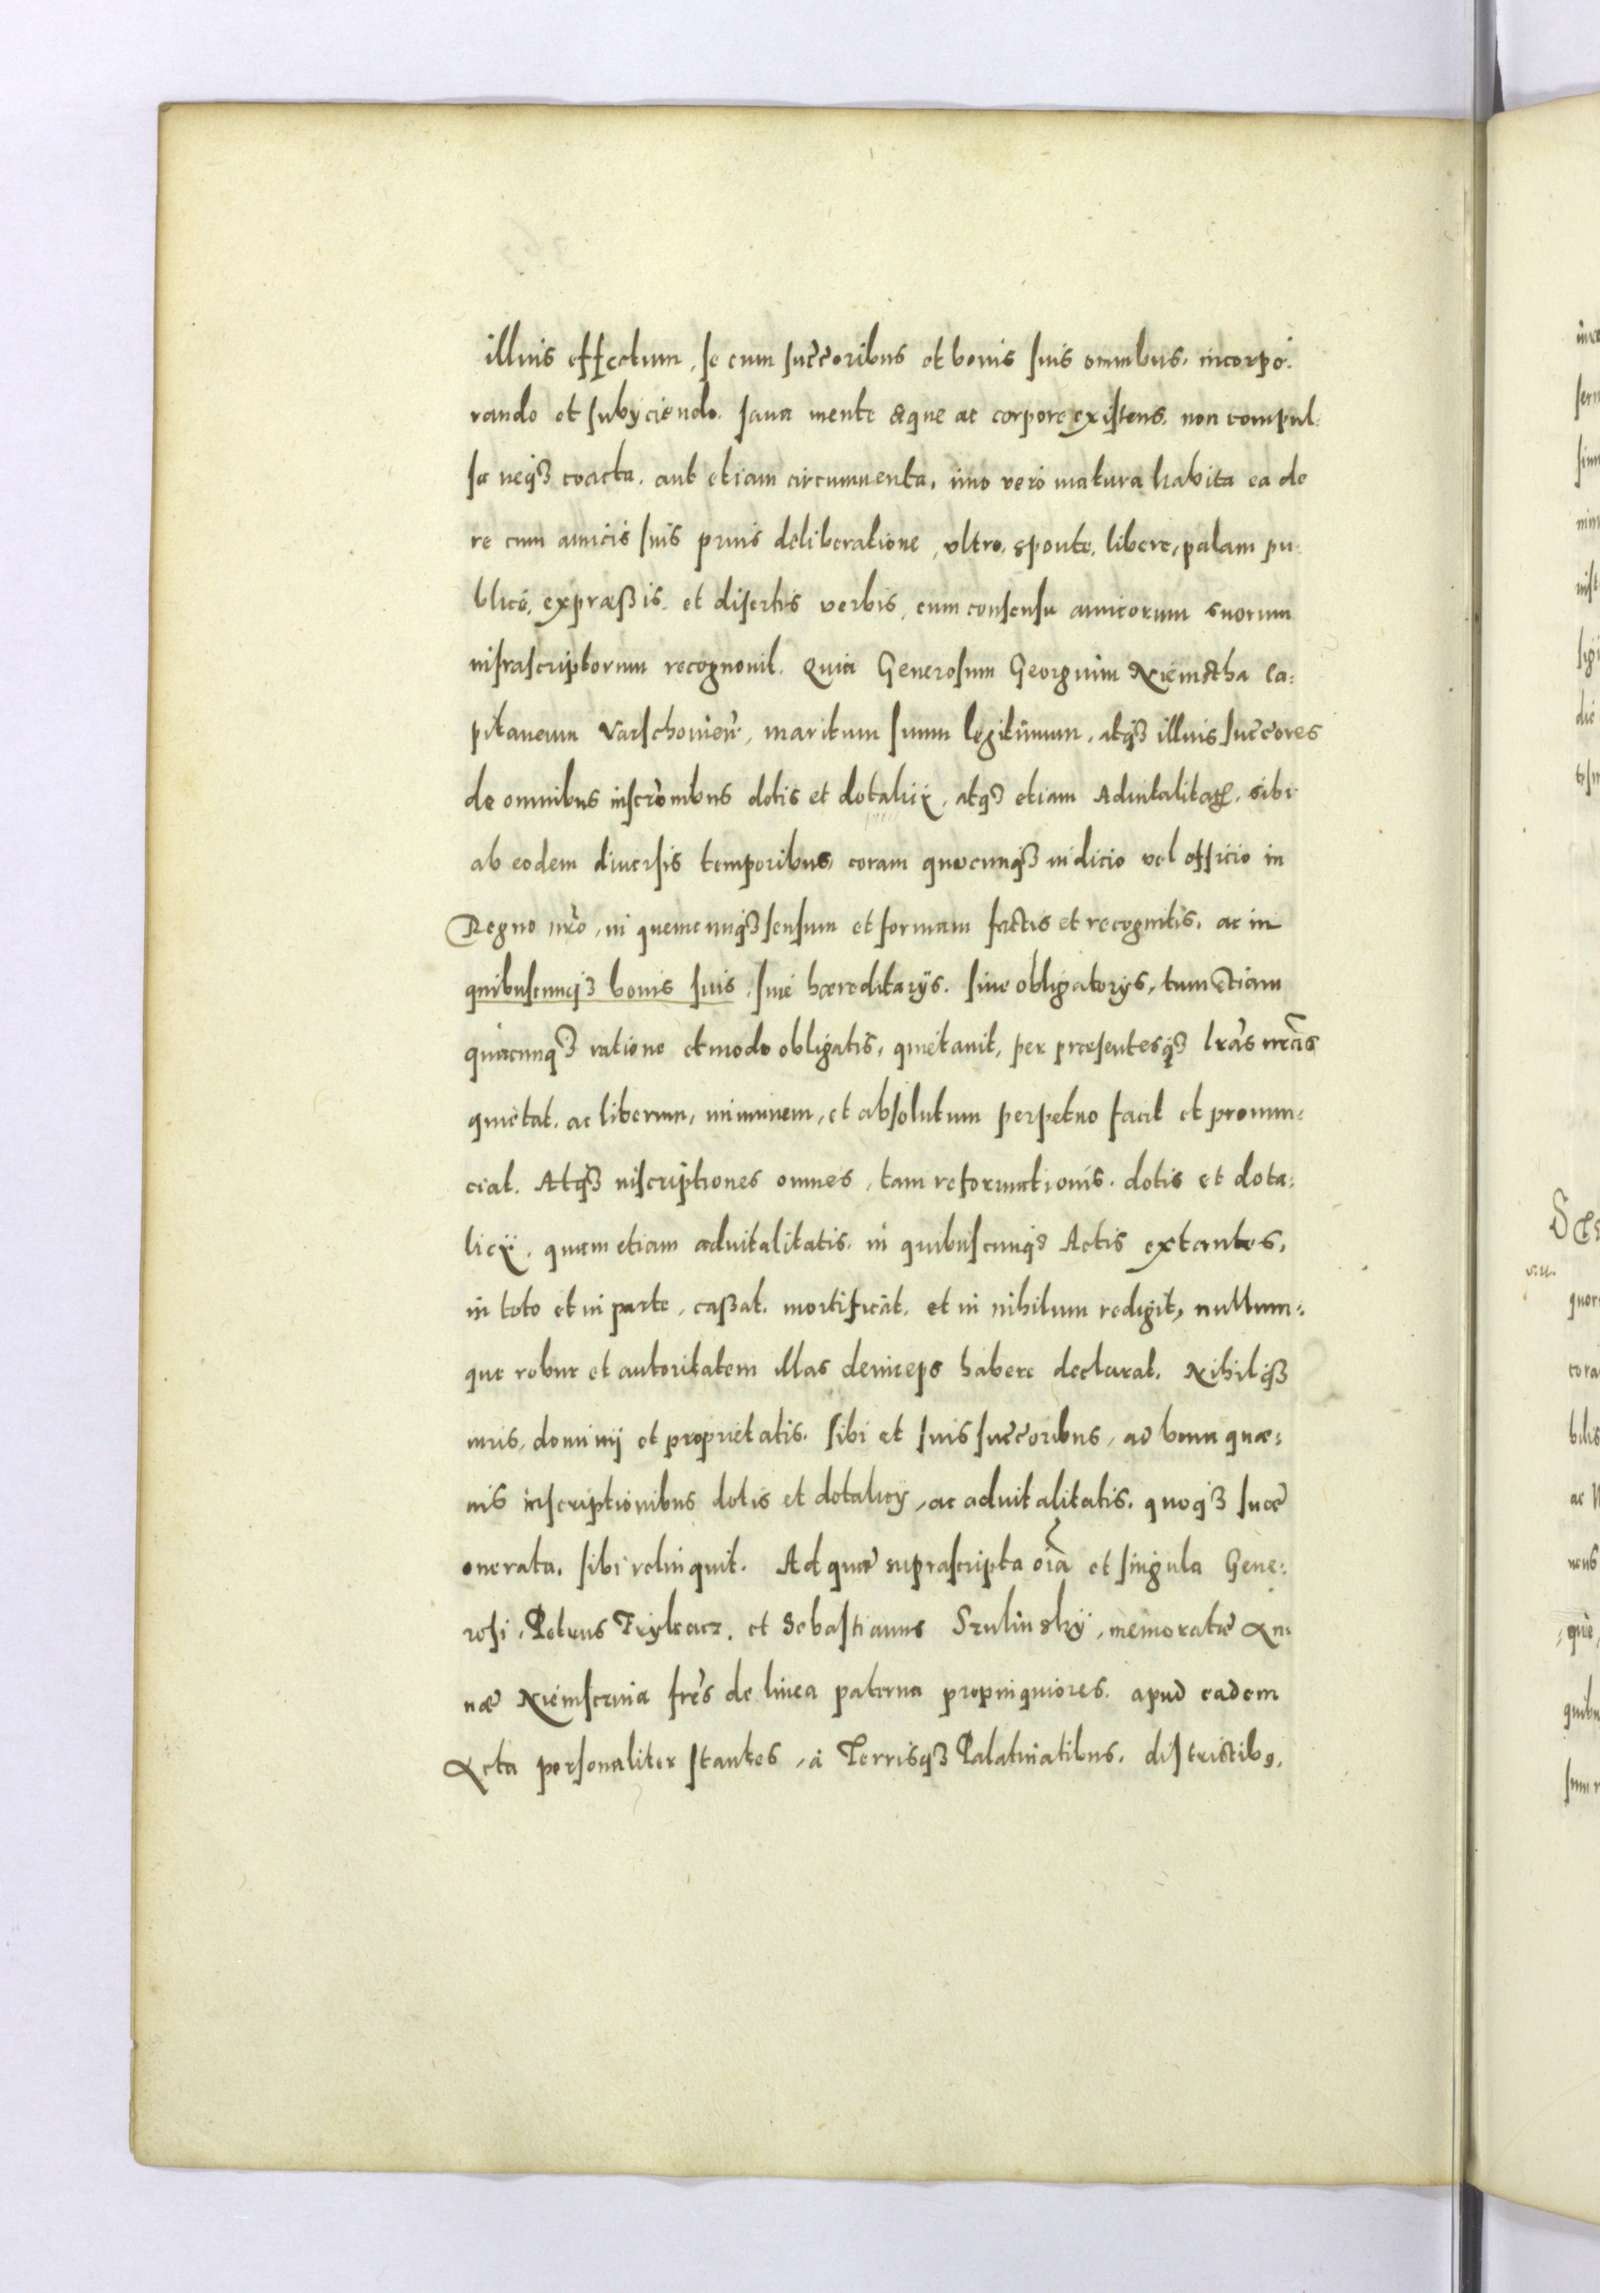 illius effectum, se cum succoribus et bonis suis omnibus, incorpo:
rando et subyciendo. sana mente æque ac corpore existens, non compul:
sa neqꝫ coacta, aut etiam circumuenta, imo vero matura habita ea de
re cum amicis suis prius deliberatione, vltro, sponte, libere, palam pu:
blicè, expræßis et disertis verbis, cum consensu amicorum suorum
infrascriptorum recognouit. Quia Generosum Georgium Niemstha Ca:
pitaneum Varschouieñ, maritum suum legitimum, atqꝫ illius succores
de omnibus inscrõnibus dotis et dotalicÿ, atqꝫ etiam Aduitalitatꝭ, sibi
ab eodem diuersis temporibus, coram quocunqꝫ iudicio vel officio in
Regno nrõ, in quemcunqꝫ sensum et formam factis et recognitis, ac in
quibuscunqꝫ bonis suis, siue hæreditarÿs, siue obligatorÿs, tum etiam
quacunqꝫ ratione et modo obligatis, quietauit, per præsentesqꝫ lrãs nrãs
quietat, ac liberum, immunem, et absolutum perpetuo facit et pronun:
ciat. Atqꝫ inscriptiones omnes, tam reformationis, dotis et dota:
licÿ, quam etiam aduitalitatis, in quibuscunqꝫ Actis extantes,
in toto et in parte, caßat, mortificat, et in nihilum redigit, nullum:
que robur et autoritatem illas deinceps habere declarat. Nihilqꝫ
iuris, dominij et proprietatis, sibi et suis succoribus, ad bona quæ:
uis inscriptionibus dotis et dotalicÿ, ac aduitalitatis, quoqꝫ suæ
onerata, sibi relinquit. Ad quæ suprascripta oĩa et singula Gene:
rosi, Petrus et Sebastianus Szulinskÿ, memoratæ An:
næ frẽs de linea paterna propinquiores, apud eadem
Acta personaliter stantes, à Terrisqꝫ Palatinatibus, districtibꝯ,